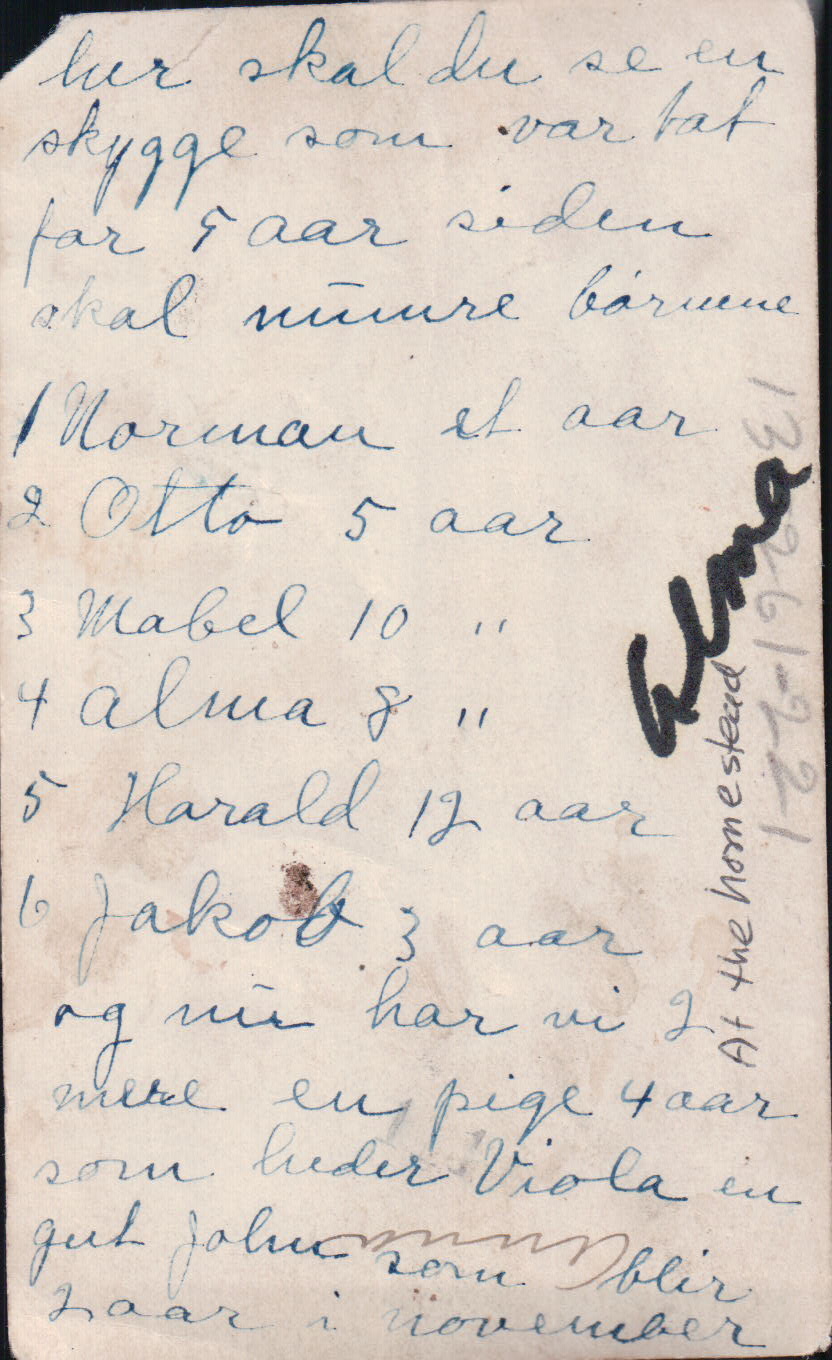 her skal du se en
skygge som var tat
for 5 aar siden
skal nūmre børnene
1 Norman et aar
2 Otto 5 aar
3 Mabel 10 "
4 alma 8 "
5 Harald 12 aar
6 Jakob 3 aar
og nū har vi 2
mere en pige 4 aar
som heder Viola en
gut John som blir
2 aar i november
Elma
At the homestead